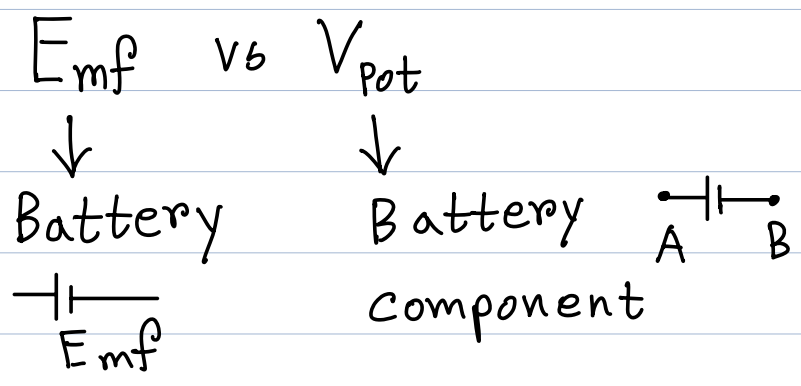 Emf vs Vpot
Battery Battery
A B
component
Emf